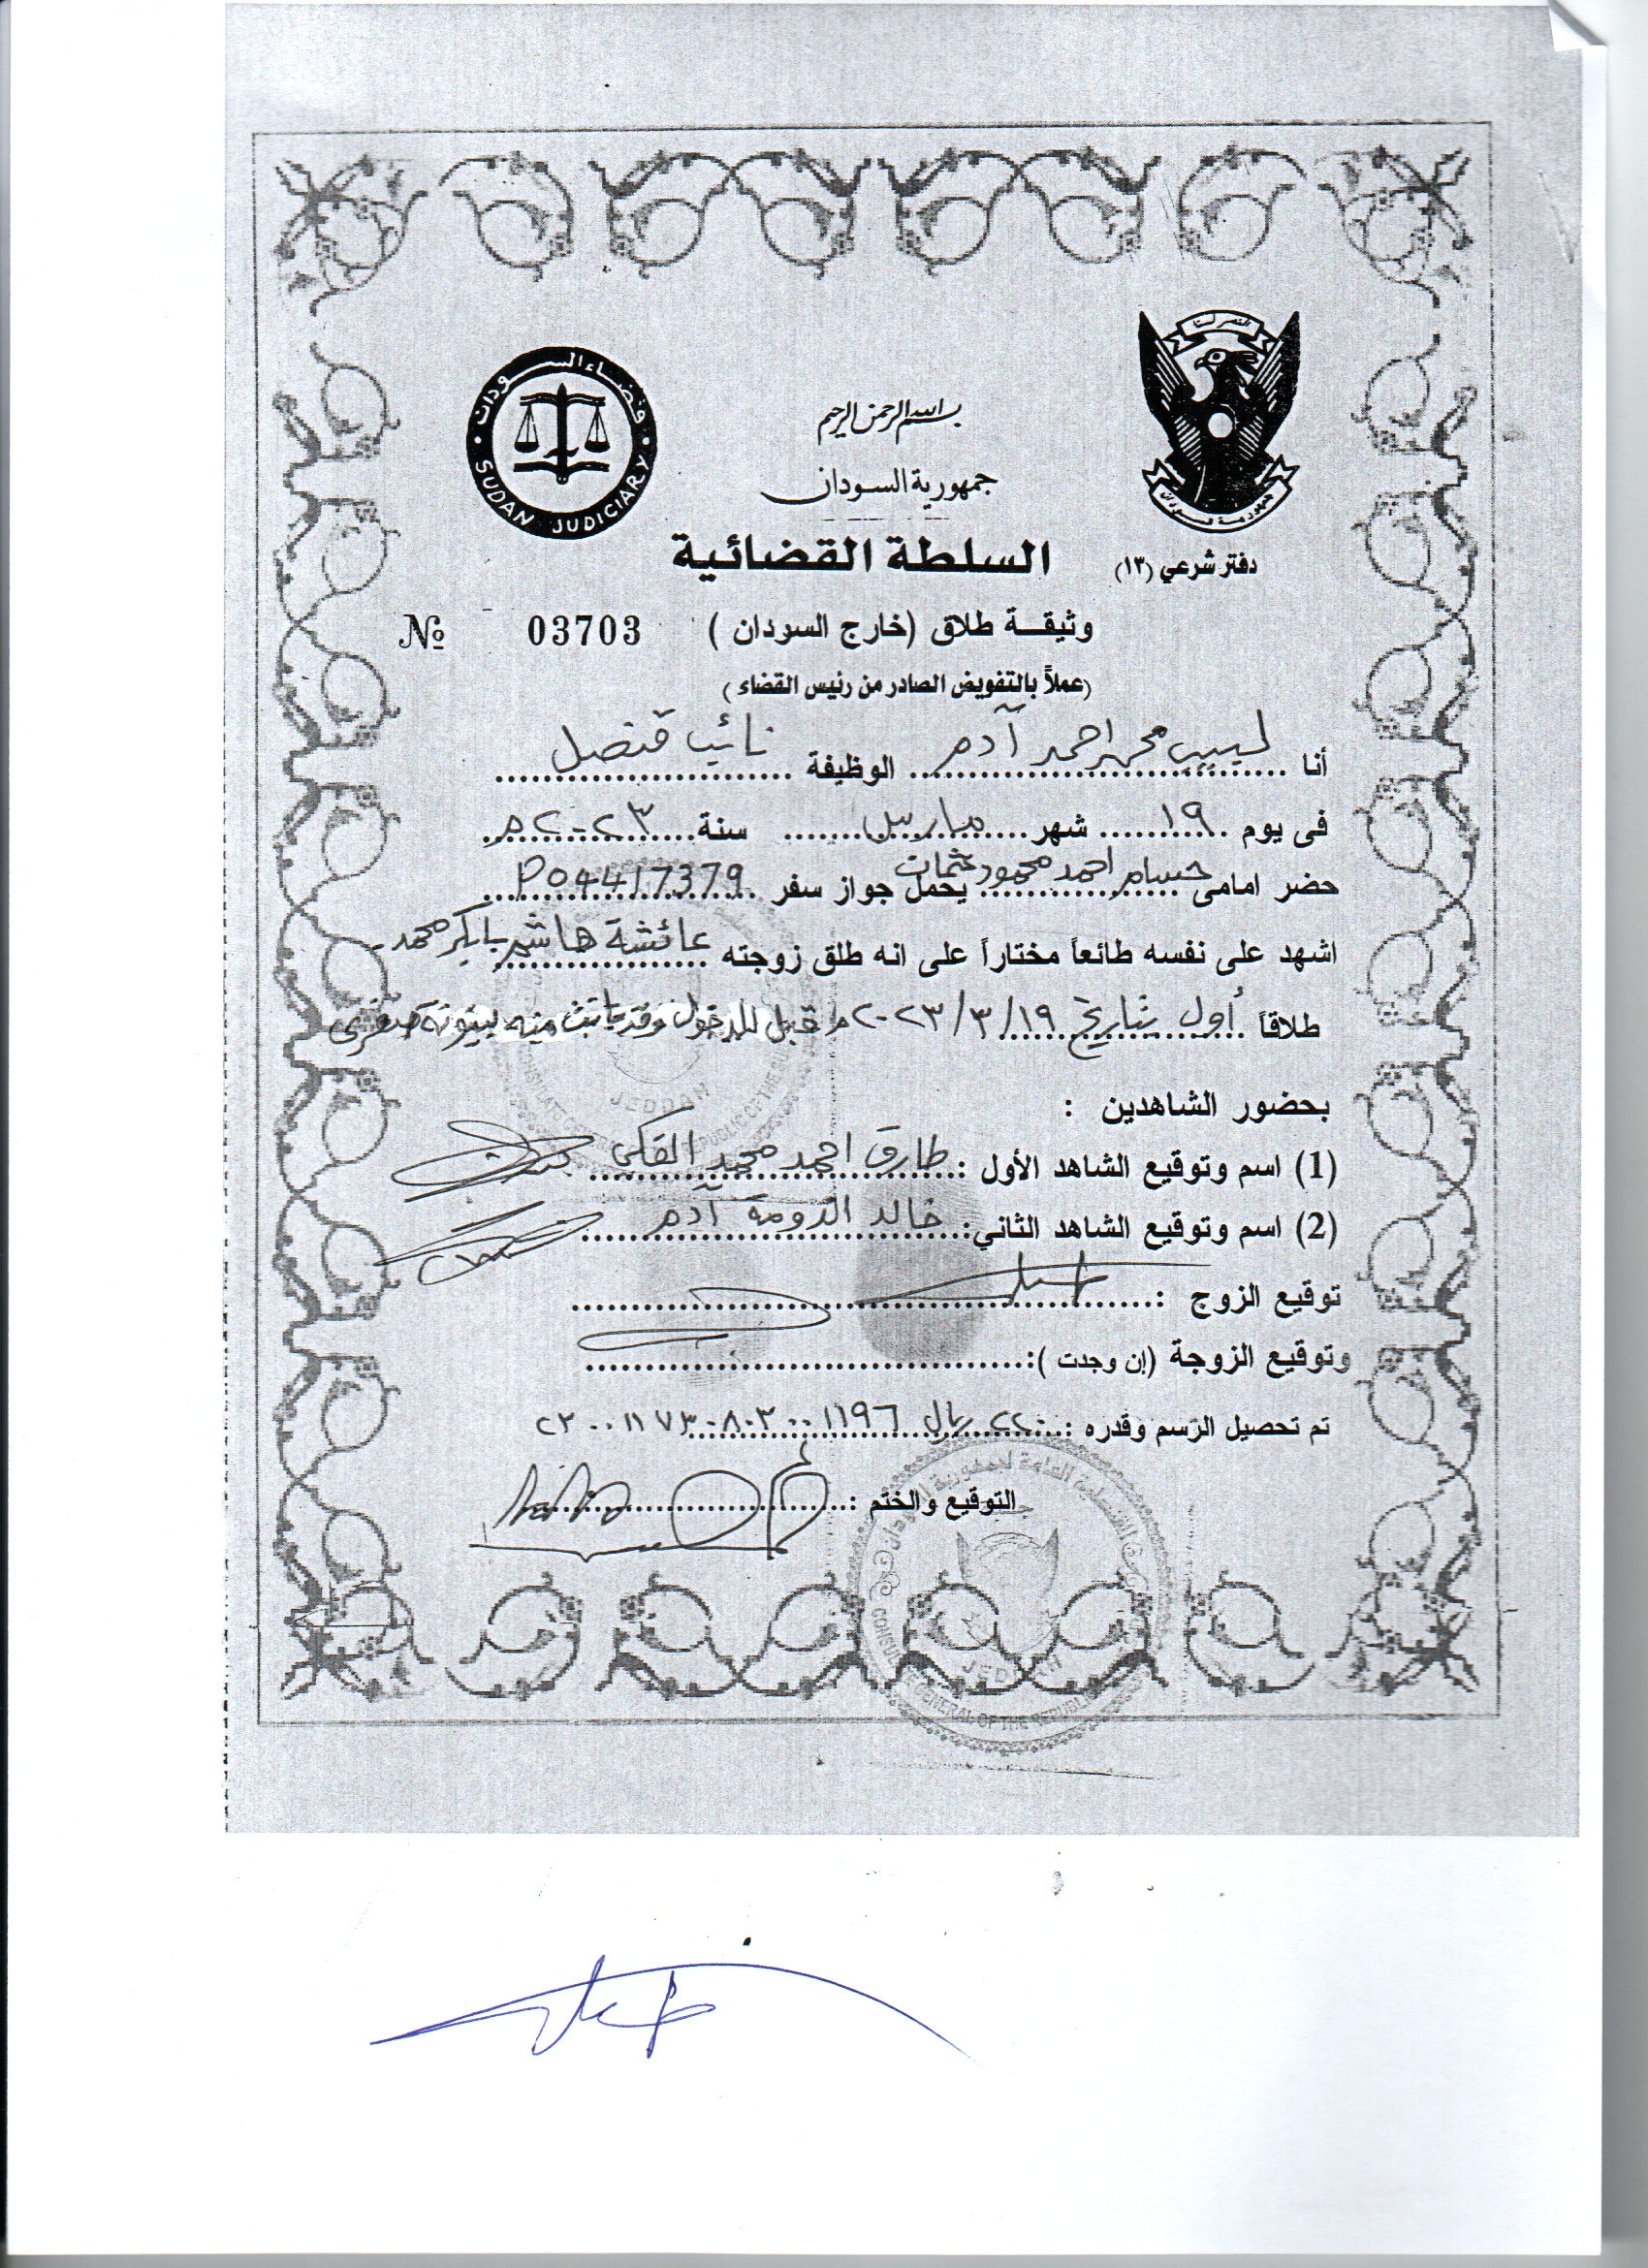 النصر لنا
جمهورية السودان
قضاء السودان
SUDAN JUDICIARY
بسم الله الرحمن الرحيم
جمهورية السودان
السلطة القضائية
دفتر شرعي (١٣)
وثيقة طلاق (خارج السودان ) 03703 №
(عملاً بالتفويض الصادر من رئيس القضاء )
أنا لبيب محمد احمد آدم الوظيفة نائب قنصل
فى يوم ١٩ شهر مارس سنة ٢٠٢٣م
حضر امامى حسام احمد محمود عثمان يحمل جواز سفر P04417379
اشهد على نفسه طائعاً مختاراً على انه طلق زوجته عائشة هاشم بابكر محمد
طلاقاً أول بتاريخ ١٩/٣/٢٠٢٣م قبل الدخول وقد بانت منه بينونة صغرى
بحضور الشاهدين :
(1) اسم وتوقيع الشاهد الأول : طارق احمد محمد الفكي
(2) اسم وتوقيع الشاهد الثاني: خالد الدومة آدم
توقيع الزوج :
وتوقيع الزوجة (إن وجدت ):
تم تحصيل الرسم وقدره : ٢٢٠ ريال
التوقيع والختم :
JEDDAH
CONSULATE GENERAL OF THE REPUBLIC